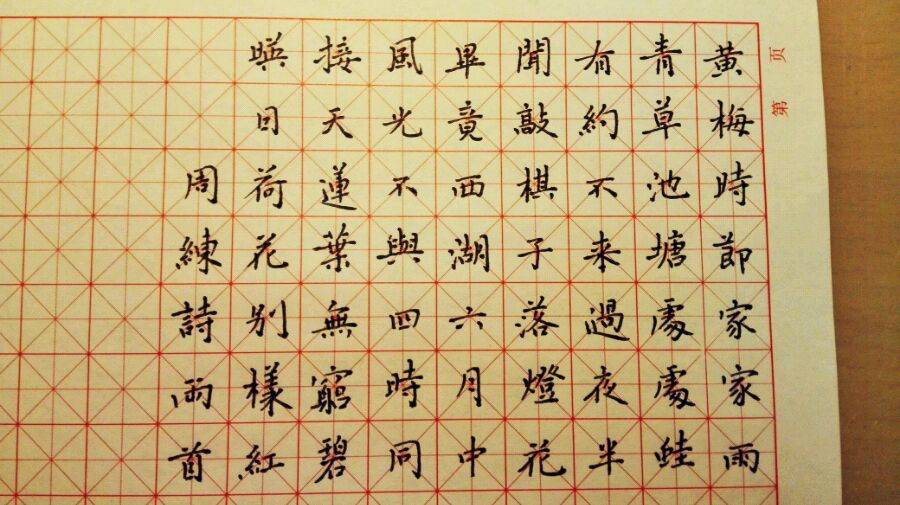 第 页
黄梅時節家家雨
青草池塘處處蛙
有約不来過夜半
聞敲棋子落燈花
畢竟西湖六月中
風光不與四時同
接天蓮葉無窮碧
暎日荷花别樣紅
周練詩兩首